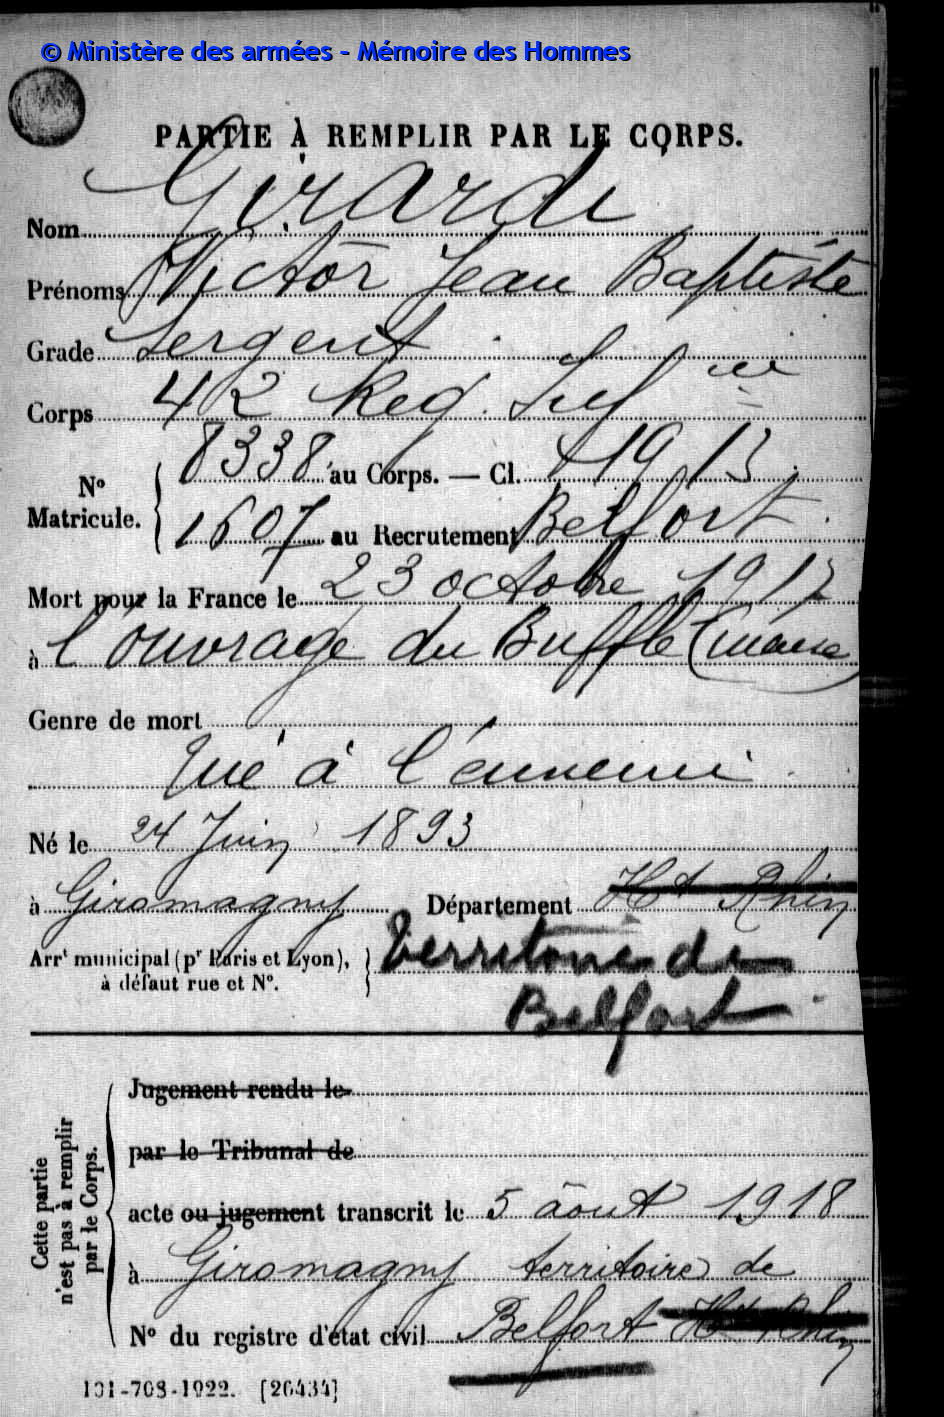 © Ministère des armées - Mémoire des Hommes
PARTIE À REMPLIR PAR LE CORPS.
Nom Girardi
Prénoms Victor Jean Baptiste
Grade Sergent
Corps 42 Reg. Inf ie
No Matricule. 8338 au Corps. — Cl. 1913
1607 au Recrutement Belfort
Mort pour la France le 23 octobre 1917
à l'ouvrage du Buffle (
Genre de mort
Tué à l'ennemi
Né le 24 Juin 1893
à Giromagny Département Ht Rhin
Arrt municipal (pr Paris et Lyon), à défaut rue et No. Territoire de
Belfort
Cette partie n'est pas à remplir par le Corps.
Jugement rendu le
par le Tribunal de
acte ou jugement transcrit le 5 août 1918
à Giromagny territoire de
No du registre d'état civil Belfort Ht Rhin
101-708-1922. [26434]